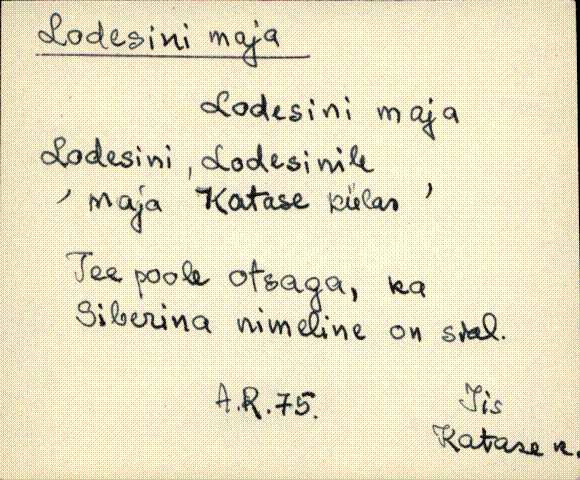 Lodesini maja
Lodesini maja
Lodesini, Lodesinile
' maja Katase külas '
Tee poole otsaga, ka
Siberina nimeline on seal.
A.R. 75.
Iis
Katase k.